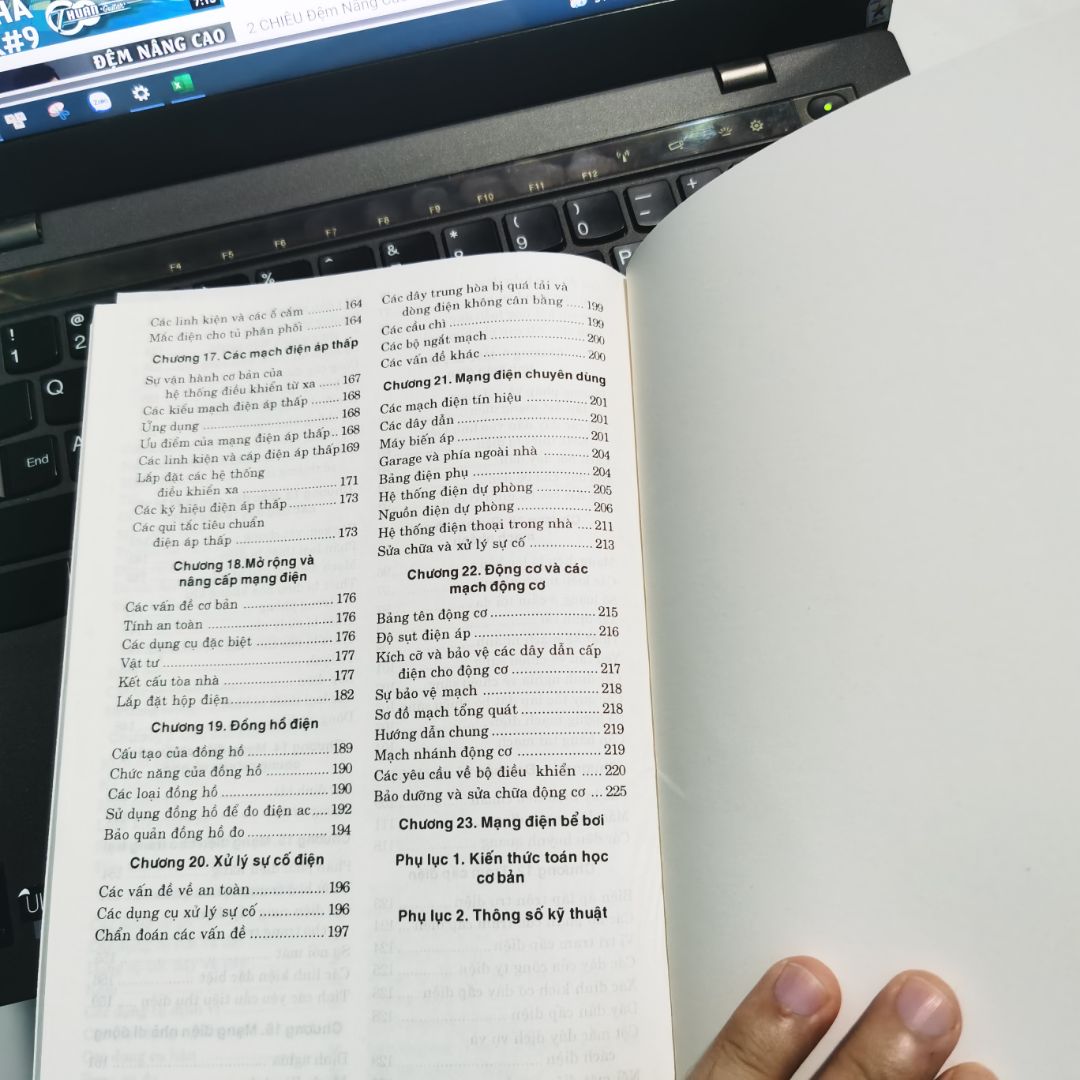 #9
THUẬN
ĐỆM NÂNG CAO
2 CHIÊU Đệm Nâng Cao
Zalo
F4 F5 F6 F7 F8 F9 F10 F11 F12
% ^ & * ( ) _ +
8 9 0 P
! 1
@ 2
Q
A
End
Các linh kiện và các ổ cắm .......... 164
Mắc điện cho tủ phân phối .......... 164
Chương 17. Các mạch điện áp thấp
Sự vận hành cơ bản của
hệ thống điều khiển từ xa ...... 167
Các kiểu mạch điện áp thấp ........ 168
Ứng dụng ................................ 168
Ưu điểm của mạng điện áp thấp.. 168
Các linh kiện và cáp điện áp thấp169
Lắp đặt các hệ thống
điều khiển xa ........................ 171
Các ký hiệu điện áp thấp............ 173
Các qui tắc tiêu chuẩn
điện áp thấp ......................... 173
Chương 18.Mở rộng và
nâng cấp mạng điện
Các vấn đề cơ bản ...................... 176
Tính an toàn .............................. 176
Các dụng cụ đặc biệt .................. 176
Vật tư ........................................ 177
Kết cấu tòa nhà .......................... 177
Lắp đặt hộp điện........................ 182
Chương 19. Đồng hồ điện
Cấu tạo của đồng hồ .................. 189
Chức năng của đồng hồ .............. 190
Các loại đồng hồ ........................ 190
Sử dụng đồng hồ để đo điện ac.... 192
Bảo quản đồng hồ đo .................. 194
Chương 20. Xử lý sự cố điện
Các vấn đề về an toàn................ 196
Các dụng cụ xử lý sự cố.............. 196
Chẩn đoán các vấn đề ................ 197
Các dây trung hòa bị quá tải và
dòng điện không cân bằng ..... 199
Các cầu chì ................................ 199
Các bộ ngắt mạch ...................... 200
Các vấn đề khác ........................ 200
Chương 21. Mạng điện chuyên dùng
Các mạch điện tín hiệu .............. 201
Các dây dẫn .............................. 201
Máy biến áp .............................. 201
Garage và phía ngoài nhà .......... 204
Bảng điện phụ .......................... 204
Hệ thống điện dự phòng ............ 205
Nguồn điện dự phòng ................ 206
Hệ thống điện thoại trong nhà .... 211
Sửa chữa và xử lý sự cố .............. 213
Chương 22. Động cơ và các
mạch động cơ
Bảng tên động cơ ...................... 215
Độ sụt điện áp .......................... 216
Kích cỡ và bảo vệ các dây dẫn cấp
điện cho động cơ .................. 217
Sự bảo vệ mạch ........................ 218
Sơ đồ mạch tổng quát................ 218
Hướng dẫn chung ...................... 219
Mạch nhánh động cơ .................. 219
Các yêu cầu về bộ điều khiển ..... 220
Bảo dưỡng và sửa chữa động cơ ... 225
Chương 23. Mạng điện bể bơi
Phụ lục 1. Kiến thức toán học
cơ bản
Phụ lục 2. Thông số kỹ thuật